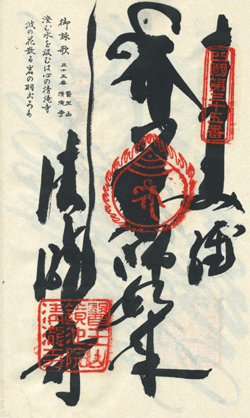 四國第三十五番
師如来
清瀧寺
醫王山
鏡池院
清瀧寺
御詠歌 三十五番 醫王山 清滝寺
澄む水を汲むは心の清滝寺
波の花散る岩の羽ごろも